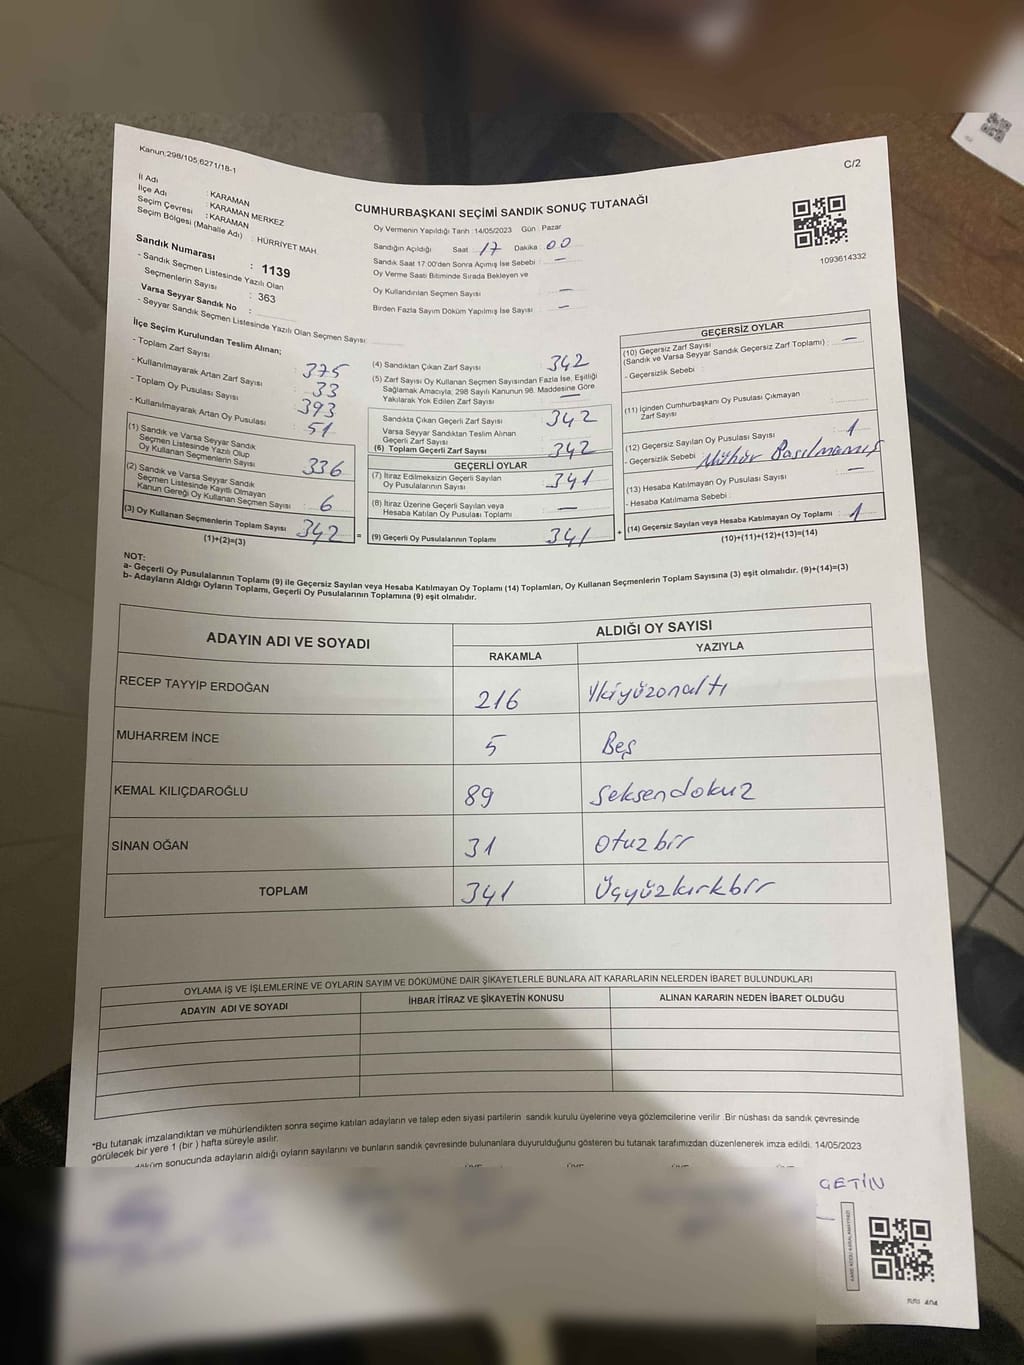 Kanun;298/105,6271/18-1
C/2
İl Adı : KARAMAN
İlçe Adı : KARAMAN MERKEZ
Seçim Çevresi : KARAMAN
Seçim Bölgesi (Mahalle Adı) : HÜRRİYET MAH.
Sandık Numarası : 1139
- Sandık Seçmen Listesinde Yazılı Olan
Seçmenlerin Sayısı : 363
Varsa Seyyar Sandık No :
- Seyyar Sandık Seçmen Listesinde Yazılı Olan Seçmen Sayısı :
CUMHURBAŞKANI SEÇİMİ SANDIK SONUÇ TUTANAĞI
Oy Vermenin Yapıldığı Tarih :14/05/2023 Gün : Pazar
Sandığın Açıldığı Saat : 17 Dakika : 00
Sandık Saat 17.00'den Sonra Açımış İse Sebebi : —
Oy Verme Saati Bitiminde Sırada Bekleyen ve
Oy Kullandırılan Seçmen Sayısı : —
Birden Fazla Sayım Döküm Yapılmış İse Sayısı : —
1093614332
İlçe Seçim Kurulundan Teslim Alınan;
- Toplam Zarf Sayısı : 375
- Kullanılmayarak Artan Zarf Sayısı : 33
- Toplam Oy Pusulası Sayısı : 393
- Kullanılmayarak Artan Oy Pusulası : 51
(1) Sandık ve Varsa Seyyar Sandık
Seçmen Listesinde Yazılı Olup
Oy Kullanan Seçmenlerin Sayısı : 336
(2) Sandık ve Varsa Seyyar Sandık
Seçmen Listesinde Kayıtlı Olmayan
Kanun Gereği Oy Kullanan Seçmen Sayısı : 6
(3) Oy Kullanan Seçmenlerin Toplam Sayısı : 342 =
(1)+(2)=(3)
(4) Sandıktan Çıkan Zarf Sayısı : 342
(5) Zarf Sayısı Oy Kullanan Seçmen Sayısından Fazla İse, Eşitliği
Sağlamak Amacıyla; 298 Sayılı Kanunun 98. Maddesine Göre
Yakılarak Yok Edilen Zarf Sayısı : —
Sandıkta Çıkan Geçerli Zarf Sayısı : 342
Varsa Seyyar Sandıktan Teslim Alınan
Geçerli Zarf Sayısı :
(6) Toplam Geçerli Zarf Sayısı : 342
GEÇERLİ OYLAR
(7) İtiraz Edilmeksizin Geçerli Sayılan
Oy Pusulalarının Sayısı : 341
(8) İtiraz Üzerine Geçerli Sayılan veya
Hesaba Katılan Oy Pusulası Toplamı : —
(9) Geçerli Oy Pusulalarının Toplamı : 341 +
GEÇERSİZ OYLAR
(10) Geçersiz Zarf Sayısı
(Sandık ve Varsa Seyyar Sandık Geçersiz Zarf Toplamı) : —
- Geçersizlik Sebebi :
(11) İçinden Cumhurbaşkanı Oy Pusulası Çıkmayan
Zarf Sayısı :
(12) Geçersiz Sayılan Oy Pusulası Sayısı : 1
- Geçersizlik Sebebi Mühür Basılmamış
(13) Hesaba Katılmayan Oy Pusulası Sayısı : —
- Hesaba Katılmama Sebebi :
(14) Geçersiz Sayılan veya Hesaba Katılmayan Oy Toplamı : 1
(10)+(11)+(12)+(13)=(14)
NOT:
a- Geçerli Oy Pusulalarının Toplamı (9) ile Geçersiz Sayılan veya Hesaba Katılmayan Oy Toplamı (14) Toplamları, Oy Kullanan Seçmenlerin Toplam Sayısına (3) eşit olmalıdır. (9)+(14)=(3)
b- Adayların Aldığı Oyların Toplamı, Geçerli Oy Pusulalarının Toplamına (9) eşit olmalıdır.
ADAYIN ADI VE SOYADI ALDIĞI OY SAYISI
RAKAMLA YAZIYLA
RECEP TAYYİP ERDOĞAN 216 İkiyüzonaltı
MUHARREM İNCE 5 Beş
KEMAL KILIÇDAROĞLU 89 Seksendokuz
SİNAN OĞAN 31 Otuzbir
TOPLAM 341 Üçyüzkırkbir
OYLAMA İŞ VE İŞLEMLERİNE VE OYLARIN SAYIM VE DÖKÜMÜNE DAİR ŞİKAYETLERLE BUNLARA AİT KARARLARIN NELERDEN İBARET BULUNDUKLARI
ADAYIN ADI VE SOYADI İHBAR İTİRAZ VE ŞİKAYETİN KONUSU ALINAN KARARIN NEDEN İBARET OLDUĞU
*Bu tutanak imzalandıktan ve mühürlendikten sonra seçime katılan adayların ve talep eden siyasi partilerin sandık kurulu üyelerine veya gözlemcilerine verilir. Bir nüshası da sandık çevresinde
görülecek bir yere 1 (bir ) hafta süreyle asılır.
döküm sonucunda adayların aldığı oyların sayılarını ve bunların sandık çevresinde bulunanlara duyurulduğunu gösteren bu tutanak tarafımızdan düzenlenerek imza edildi. 14/05/2023
ÇETİN